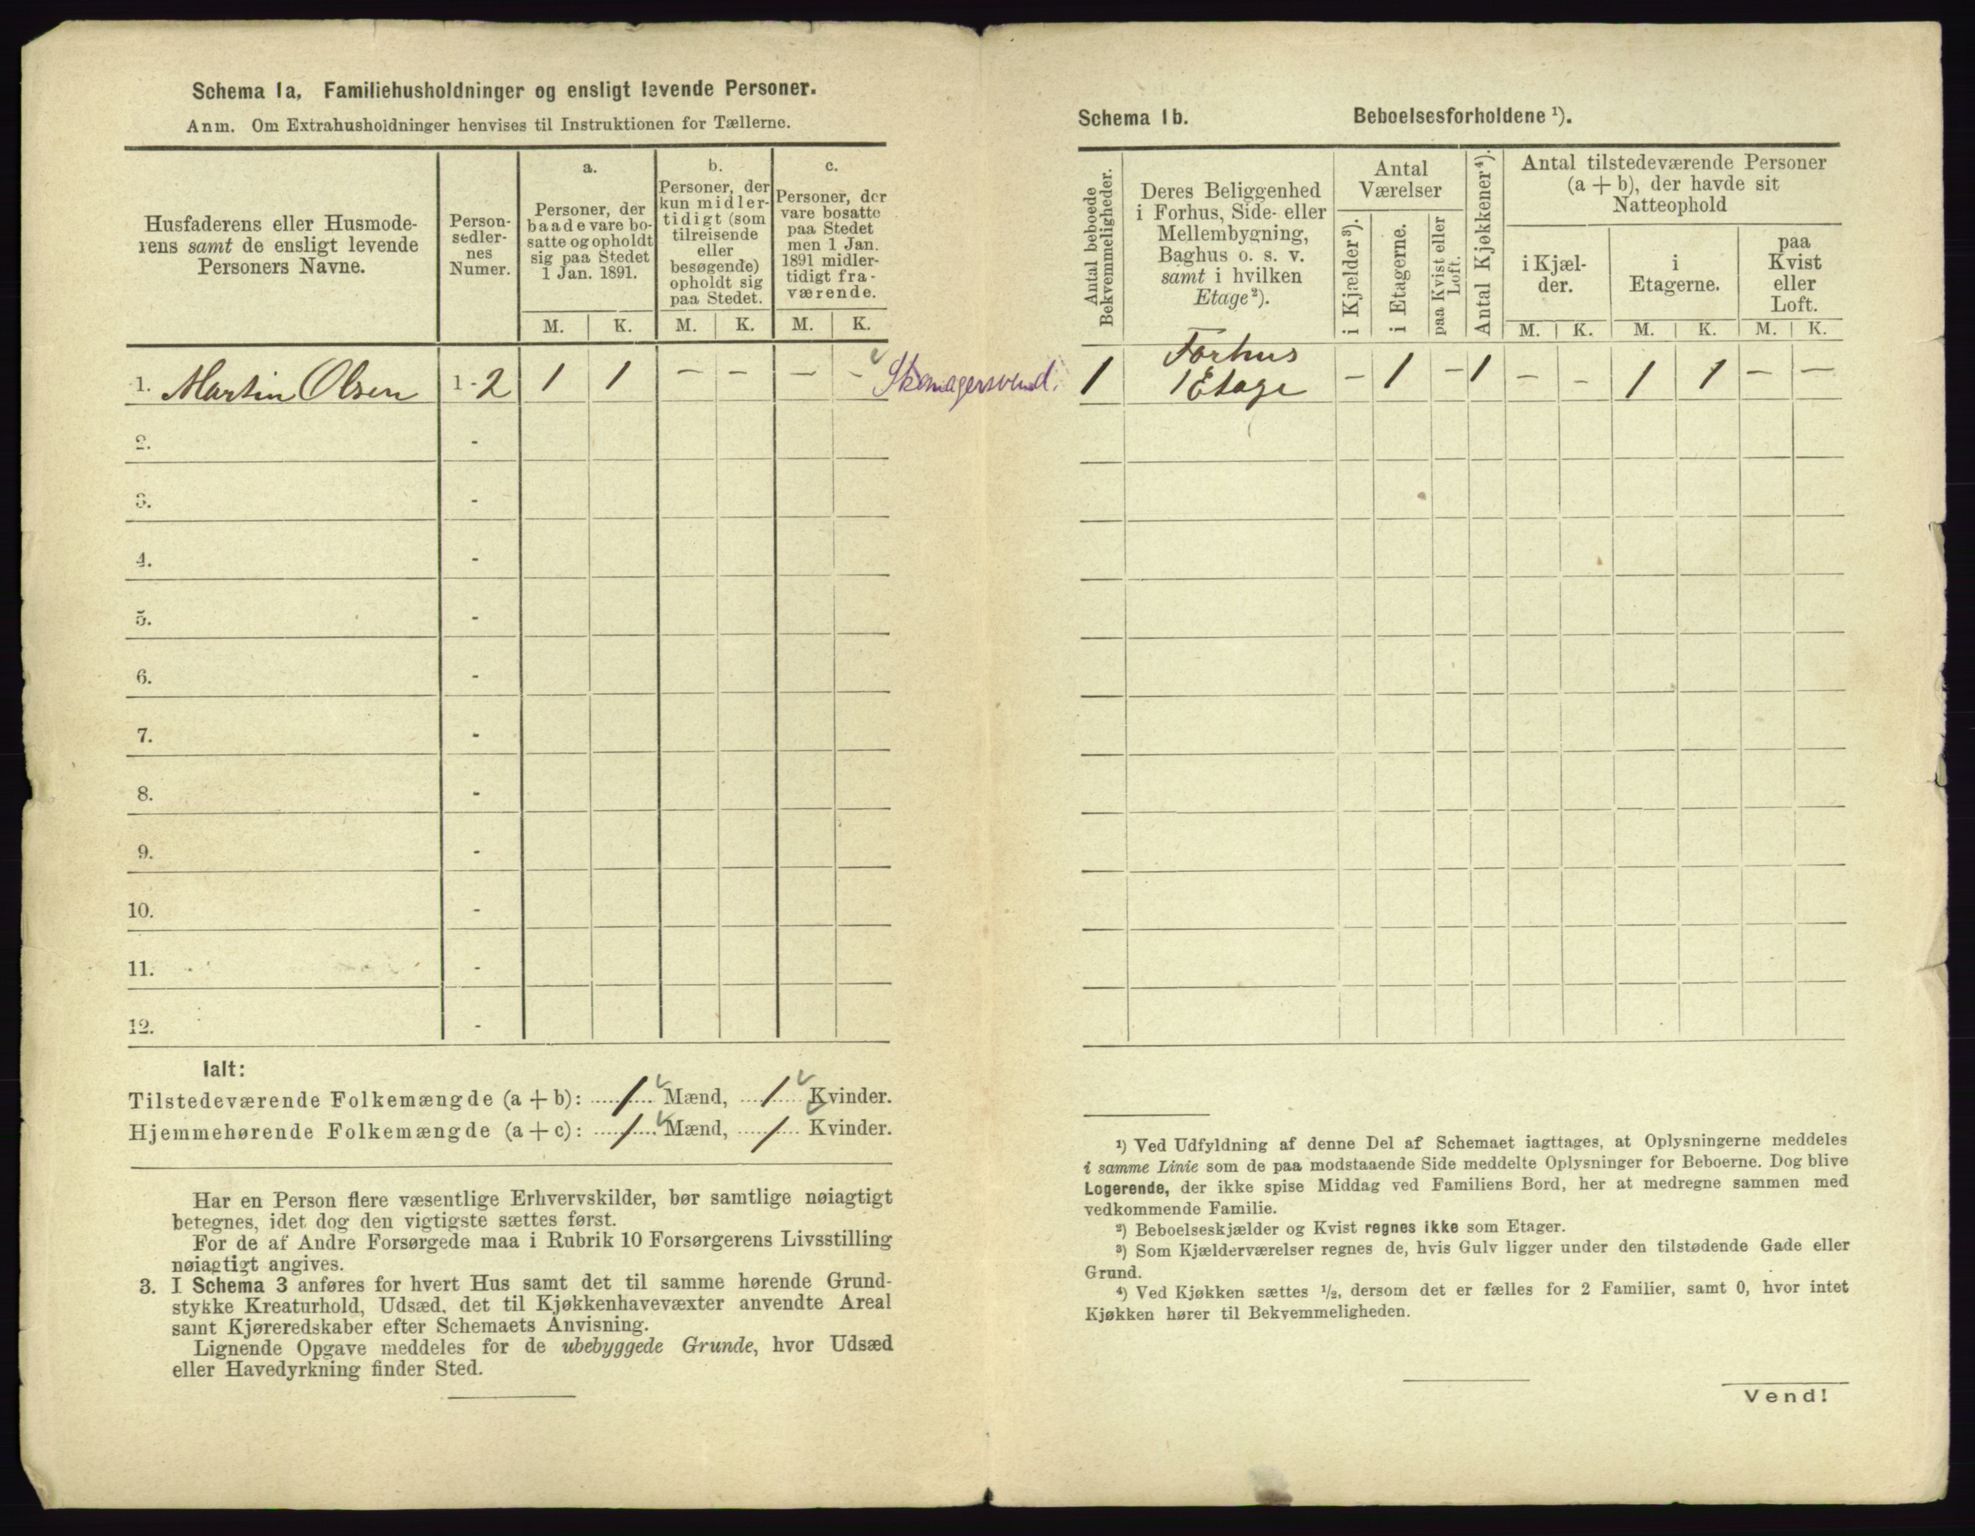 Schema 1a, Familiehusholdninger og ensligt levende Personer.
Anm. Om Extrahusholdninger henvises til Instruktionen for Tællerne.
Husfaderens eller Husmode-
rens samt de ensligt levende
Personers Navne.
Person-
sedler-
nes
Numer.
a.
Personer, der
baade vare bo-
satte og opholdt
sig paa Stedet
1 Jan. 1891.
b.
Personer, der
kun midler-
tidigt (som
tilreisende
eller
besøgende)
opholdt sig
paa Stedet.
c.
Personer, der
vare bosatte
paa Stedet
men 1 Jan.
1891 midler-
tidigt fra-
værende.
M. K. M. K. M. K.
1. Martin Olsen 1-2 1 1 – – – – Skomagersvend.
2. -
3. -
4. -
5. -
6. -
7. -
8. -
9. -
10. -
11. -
12. -
Ialt:
Tilstedeværende Folkemængde (a + b): 1 Mænd, 1 Kvinder.
Hjemmehørende Folkemængde (a + c): 1 Mænd, 1 Kvinder.
Har en Person flere væsentlige Erhvervskilder, bør samtlige nøiagtigt
betegnes, idet dog den vigtigste sættes først.
For de af Andre Forsørgede maa i Rubrik 10 Forsørgerens Livsstilling
nøiagtigt angives.
3. I Schema 3 anføres for hvert Hus samt det til samme hørende Grund-
stykke Kreaturhold, Udsæd, det til Kjøkkenhavevæxter anvendte Areal
samt Kjøreredskaber efter Schemaets Anvisning.
Lignende Opgave meddeles for de ubebyggede Grunde, hvor Udsæd
eller Havedyrkning finder Sted.
Schema 1b. Beboelsesforholdene ¹).
Antal beboede
Bekvemmeligheder.
Deres Beliggenhed
i Forhus, Side- eller
Mellembygning,
Baghus o. s. v.
samt i hvilken
Etage²).
Antal
Værelser
i Kjælder³).
i Etagerne.
paa Kvist eller
Loft.
Antal Kjøkkener⁴).
Antal tilstedeværende Personer
(a + b), der havde sit
Natteophold
i Kjæl-
der.
i
Etagerne.
paa
Kvist
eller
Loft.
M. K. M. K. M. K.
Forhus
1 1 Etage – 1 – 1 – – 1 1 – –
¹) Ved Udfyldning af denne Del af Schemaet iagttages, at Oplysningerne meddeles
i samme Linie som de paa modstaaende Side meddelte Oplysninger for Beboerne. Dog blive
Logerende, der ikke spise Middag ved Familiens Bord, her at medregne sammen med
vedkommende Familie.
²) Beboelseskjælder og Kvist regnes ikke som Etager.
³) Som Kjælderværelser regnes de, hvis Gulv ligger under den tilstødende Gade eller
Grund.
⁴) Ved Kjøkken sættes ½, dersom det er fælles for 2 Familier, samt 0, hvor intet
Kjøkken hører til Bekvemmeligheden.
Vend!